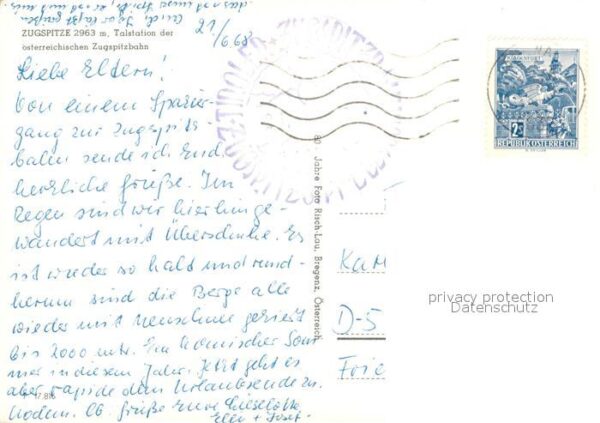 21/6 68
ZUGSPITZE 2963 m, Talstation der
österreichischen Zugspitzbahn
Liebe Eltern!
Von einem Spazier-
gang zur Zugspitz
bahn sende ich Euch
herzliche Grüße. Im
Regen sind wir hierhinge-
wandert mit Überschuhe. Es
ist wieder so kalt und rund-
herum sind die Berge alle
wieder mit Neuschnee geziert
bis 2000 mtr. Ein komischer Som
mer in diesem Jahr. Jetzt geht es
aber rapide dem Urlaubsende zu.
Lb. Grüße Eure Lieselotte
+ Josef.
17.818
80 Jahre Foto Risch-Lau, Bregenz, Österreich
KLAGENFURT
2
REPUBLIK ÖSTERREICH
Kar
D-5
Frie
privacy protection
Datenschutz